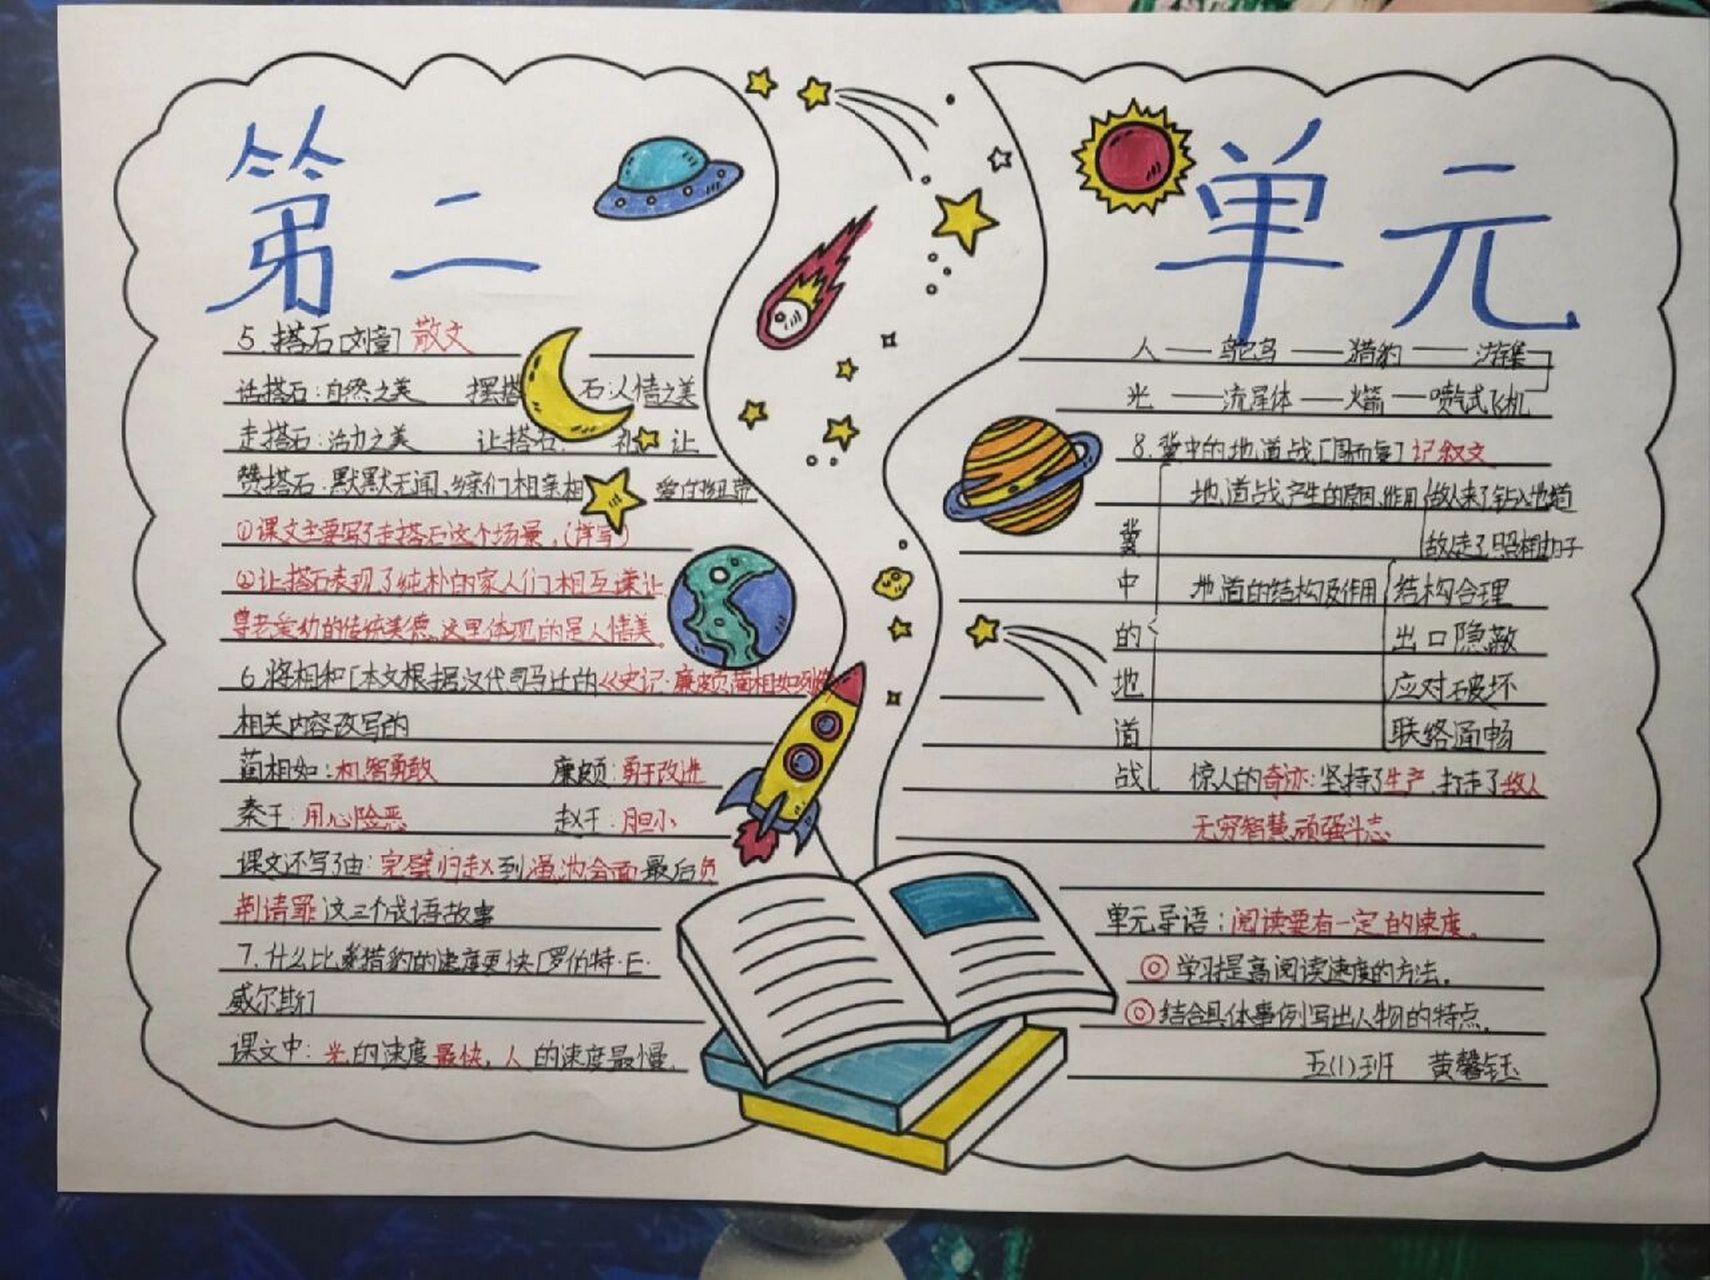 第二
单元
5.搭石[刘章]散文
话搭石:自然之美 摆搭石:人情之美
走搭石:活力之美 让搭石: 礼让
赞搭石:默默无闻、乡亲们相亲相爱的纽带
①课文主要写了走搭石这个场景。(详写)
②让搭石表现了纯朴的家人们相互谦让
尊老爱幼的传统美德。这里体现的是人情美。
6.将相和[本文根据汉代司马迁的《史记·廉颇蔺相如列传
相关内容改写的
蔺相如:机智勇敢 廉颇:勇于改进
秦王:用心险恶 赵王:胆小
课文还写了由:完璧归赵到渑池会面最后负
荆请罪这三个成语故事
7.什么比猎豹的速度更快[罗伯特·E·
威尔斯]
课文中:光的速度最快,人的速度最慢。
人——鸵鸟——猎豹——游隼
光——流星体——火箭——喷气式飞机
8.冀中的地道战[周而复]记叙文
冀中的地道战
地道战产生的原因、作用 敌人来了钻入地道
敌人走了照样种子
地道的结构及作用 结构合理
出口隐蔽
应对破坏
联络通畅
惊人的奇迹:坚持了生产,打走了敌人
无穷智慧,顽强斗志
单元导语:阅读要有一定的速度。
◎学习提高阅读速度的方法。
◎结合具体事例写出人物的特点。
五(1)班 黄馨钰